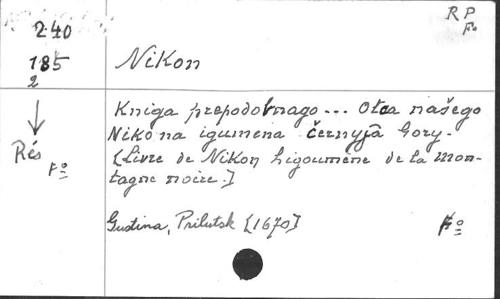 240
185
2
Rés
Fº
R P
Fº
Nikon
Kniga prepodobnago... Otca našego
Nikona igumena černyja Gory.
[Livre de Nikon higoumène de la mon-
tagne noire.]
Gustina, Prilutsk [1670]
Fº